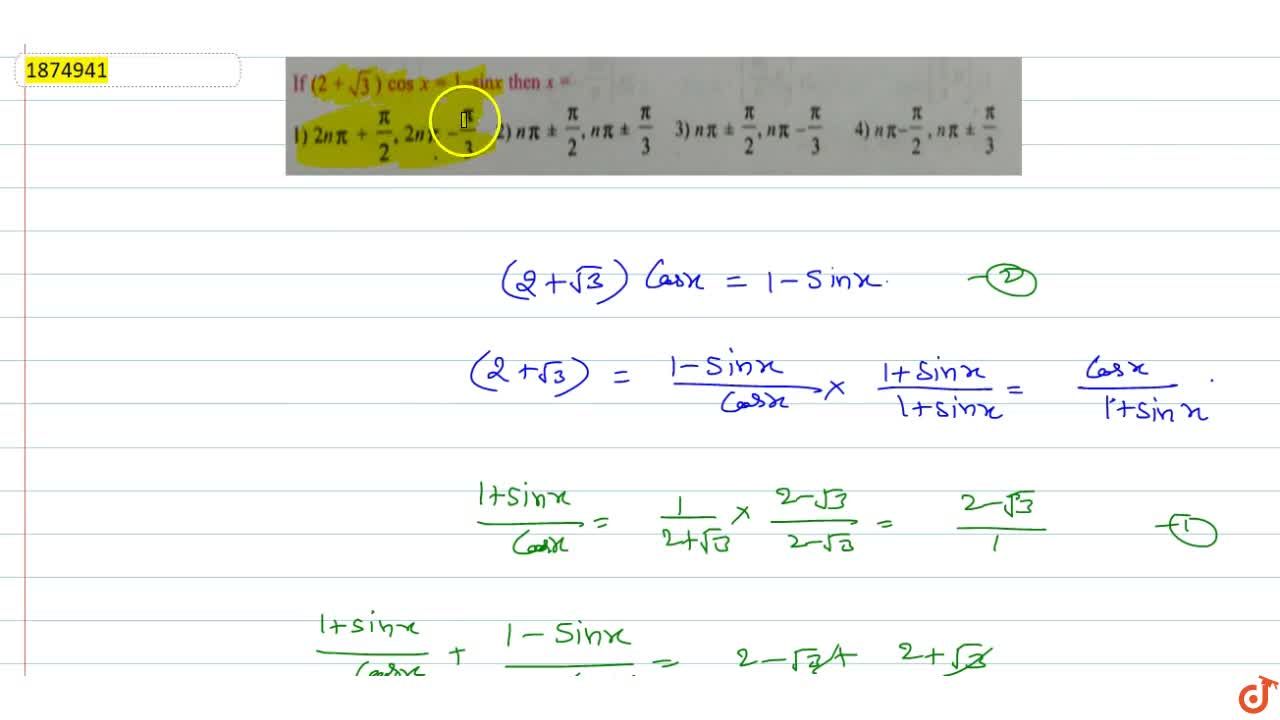 1874941
If (2 + √3 ) cos x = 1-sinx then x =
1) 2nπ + π/2, 2nπ - π/3 2) nπ ± π/2, nπ ± π/3 3) nπ ± π/2, nπ - π/3 4) nπ - π/2, nπ ± π/3
(2+√3) Cosx = 1 - Sinx. -②
(2+√3) = (1-Sinx)/(Cosx) × (1+Sinx)/(1+sinx) = (Cosx)/(1+sinx).
(1+sinx)/(Cosx) = 1/(2+√3) × (2-√3)/(2-√3) = (2-√3)/1 -①
(1+sinx)/(Cosx) + 1 - Sinx = 2-√3 + 2+√3